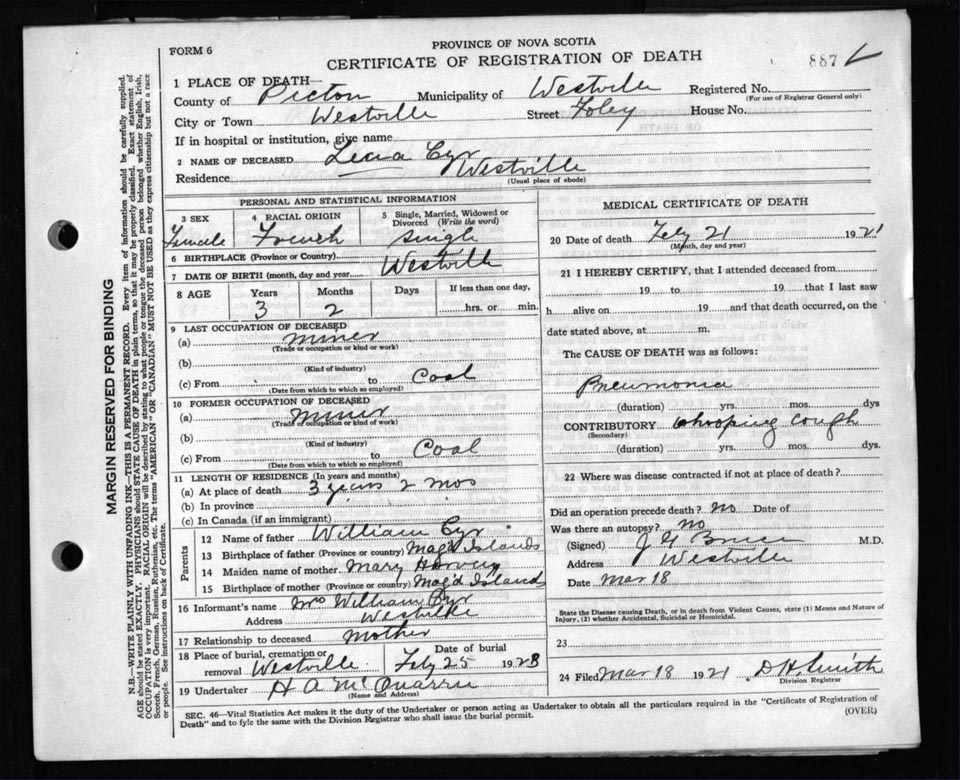 FORM 6
PROVINCE OF NOVA SCOTIA
CERTIFICATE OF REGISTRATION OF DEATH
887
1 PLACE OF DEATH—
County of Pictou Municipality of Westville Registered No.
(For use of Registrar General only)
City or Town Westville Street Foley House No.
If in hospital or institution, give name
2 NAME OF DECEASED Cyr
Residence Westville
(Usual place of abode)
PERSONAL AND STATISTICAL INFORMATION
3 SEX 4 RACIAL ORIGIN 5 Single, Married, Widowed or Divorced (Write the word)
Female French Single
6 BIRTHPLACE (Province or Country) Westville
7 DATE OF BIRTH (month, day and year)
8 AGE Years Months Days If less than one day,
3 2 hrs. or min.
9 LAST OCCUPATION OF DECEASED
(a) miner
(Trade or occupation or kind or work)
(b)
(Kind of industry)
(c) From to Coal
(Date from which to which so employed)
10 FORMER OCCUPATION OF DECEASED
(a) miner
(Trade or occupation or kind of work)
(b)
(Kind of industry)
(c) From to Coal
(Date from which to which so employed)
11 LENGTH OF RESIDENCE (In years and months)
(a) At place of death 3 years 2 mos
(b) In province
(c) In Canada (if an immigrant)
Parents
12 Name of father William Cyr
13 Birthplace of father (Province or country) Mag'd Islands
14 Maiden name of mother Mary Harvey
15 Birthplace of mother (Province or country) Mag'd Island
16 Informant's name Mrs William Cyr
Address Westville
17 Relationship to deceased Mother
18 Place of burial, cremation or removal Westville Date of burial Feby 25 192B
19 Undertaker H A McQuarrie
(Name and Address)
MEDICAL CERTIFICATE OF DEATH
20 Date of death Feby 21 1921
(Month, day and year)
21 I HEREBY CERTIFY, that I attended deceased from
19 to 19 that I last saw
h alive on 19 and that death occurred, on the
date stated above, at m.
The CAUSE OF DEATH was as follows:
Pneumonia
(duration) yrs. mos. dys
CONTRIBUTORY Whooping Cough
(Secondary)
(duration) yrs. mos. dys.
22 Where was disease contracted if not at place of death?
Did an operation precede death? no Date of
Was there an autopsy? no
(Signed) M.D.
Address Westville
Date Mar 18
State the Disease causing Death, or in death from Violent Causes, state (1) Means and Nature of
Injury, (2) whether Accidental, Suicidal or Homicidal.
23
24 Filed Mar 18 1921 D H Smith
Division Registrar
SEC. 46—Vital Statistics Act makes it the duty of the Undertaker or person acting as Undertaker to obtain all the particulars required in the "Certificate of Registration of
Death" and to fyle the same with the Division Registrar who shall issue the burial permit.
(OVER)
MARGIN RESERVED FOR BINDING
N.B.—WRITE PLAINLY WITH UNFADING INK—THIS IS A PERMANENT RECORD. Every item of information should be carefully supplied.
AGE should be stated EXACTLY. PHYSICIANS should STATE CAUSE OF DEATH in plain terms, so that it may be properly classified. Exact statement of
OCCUPATION is very important. RACIAL ORIGIN will be described by stating to what people or tongue the deceased person belonged whether English, Irish,
Scotch, French, German, Russian, Ruthenian, etc. The terms "AMERICAN" OR "CANADIAN" MUST NOT BE USED as they express citizenship but not a race
or people. See instructions on back of Certificate.